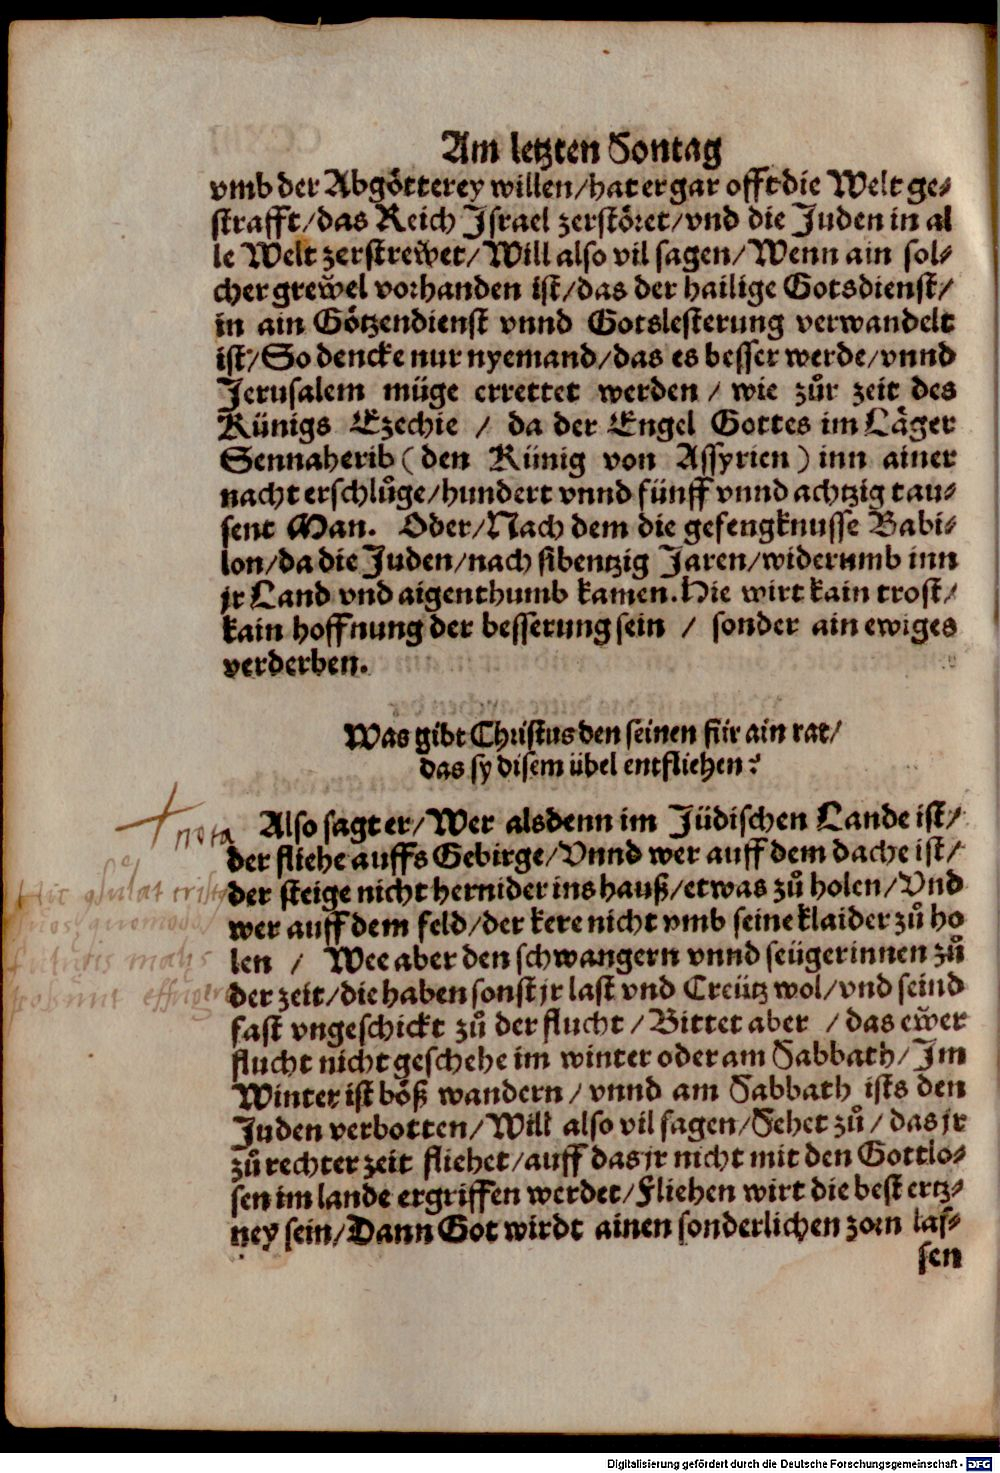 Am letzten Sontag
vmb der Abgötterey willen/hat er gar offt die Welt ge-
strafft/das Reich Israel zerstöret/vnd die Juden in al
le Welt zerstrewet/Will also vil sagen/Wenn ain sol-
cher grewel vorhanden ist/das der hailige Gotsdienst/
in ain Götzendienst vnnd Gotslesterung verwandelt
ist/So dencke nur nyemand/das es besser werde/vnnd
Jerusalem müge errettet werden / wie zůr zeit des
Künigs Ezechie / da der Engel Gottes im Läger
Sennaherib (den Künig von Assyrien) inn ainer
nacht erschlůge/hundert vnnd fünff vnnd achtzig tau-
sent Man. Oder/Nach dem die gefengknusse Babi-
lon/da die Juden/nach sibentzig Jaren/widerumb inn
jr Land vnd aigenthumb kamen. Hie wirt kain trost/
kain hoffnung der besserung sein / sonder ain ewiges
verderben.
Was gibt Christus den seinen für ain rat/
das sy disem übel entfliehen?
nota
Also sagt er/Wer alsdenn im Jüdischen Lande ist/
der fliehe auffs Gebirge/Vnnd wer auff dem dache ist/
der steige nicht hernider ins hauß/etwas zů holen/Vnd
wer auff dem feld/der kere nicht vmb seine klaider zů ho
len / Wee aber den schwangern vnnd seügerinnen zů
der zeit/die haben sonst jr last vnd Creütz wol/vnd seind
fast vngeschickt zů der flucht/Bittet aber /das ewer
flucht nicht geschehe im winter oder am Sabbath/Im
Winter ist böß wandern/vnnd am Sabbath ists den
Juden verbotten/Will also vil sagen/Sehet zů/das jr
zů rechter zeit fliehet/auff das jr nicht mit den Gottlo-
sen im lande ergriffen werdet/Fliehen wirt die best ertz-
ney sein/Dann Got wirdt ainen sonderlichen zorn las-
sen
Hic
quomodo
futuris malis
possunt
Digitalisierung gefördert durch die Deutsche Forschungsgemeinschaft - DFG